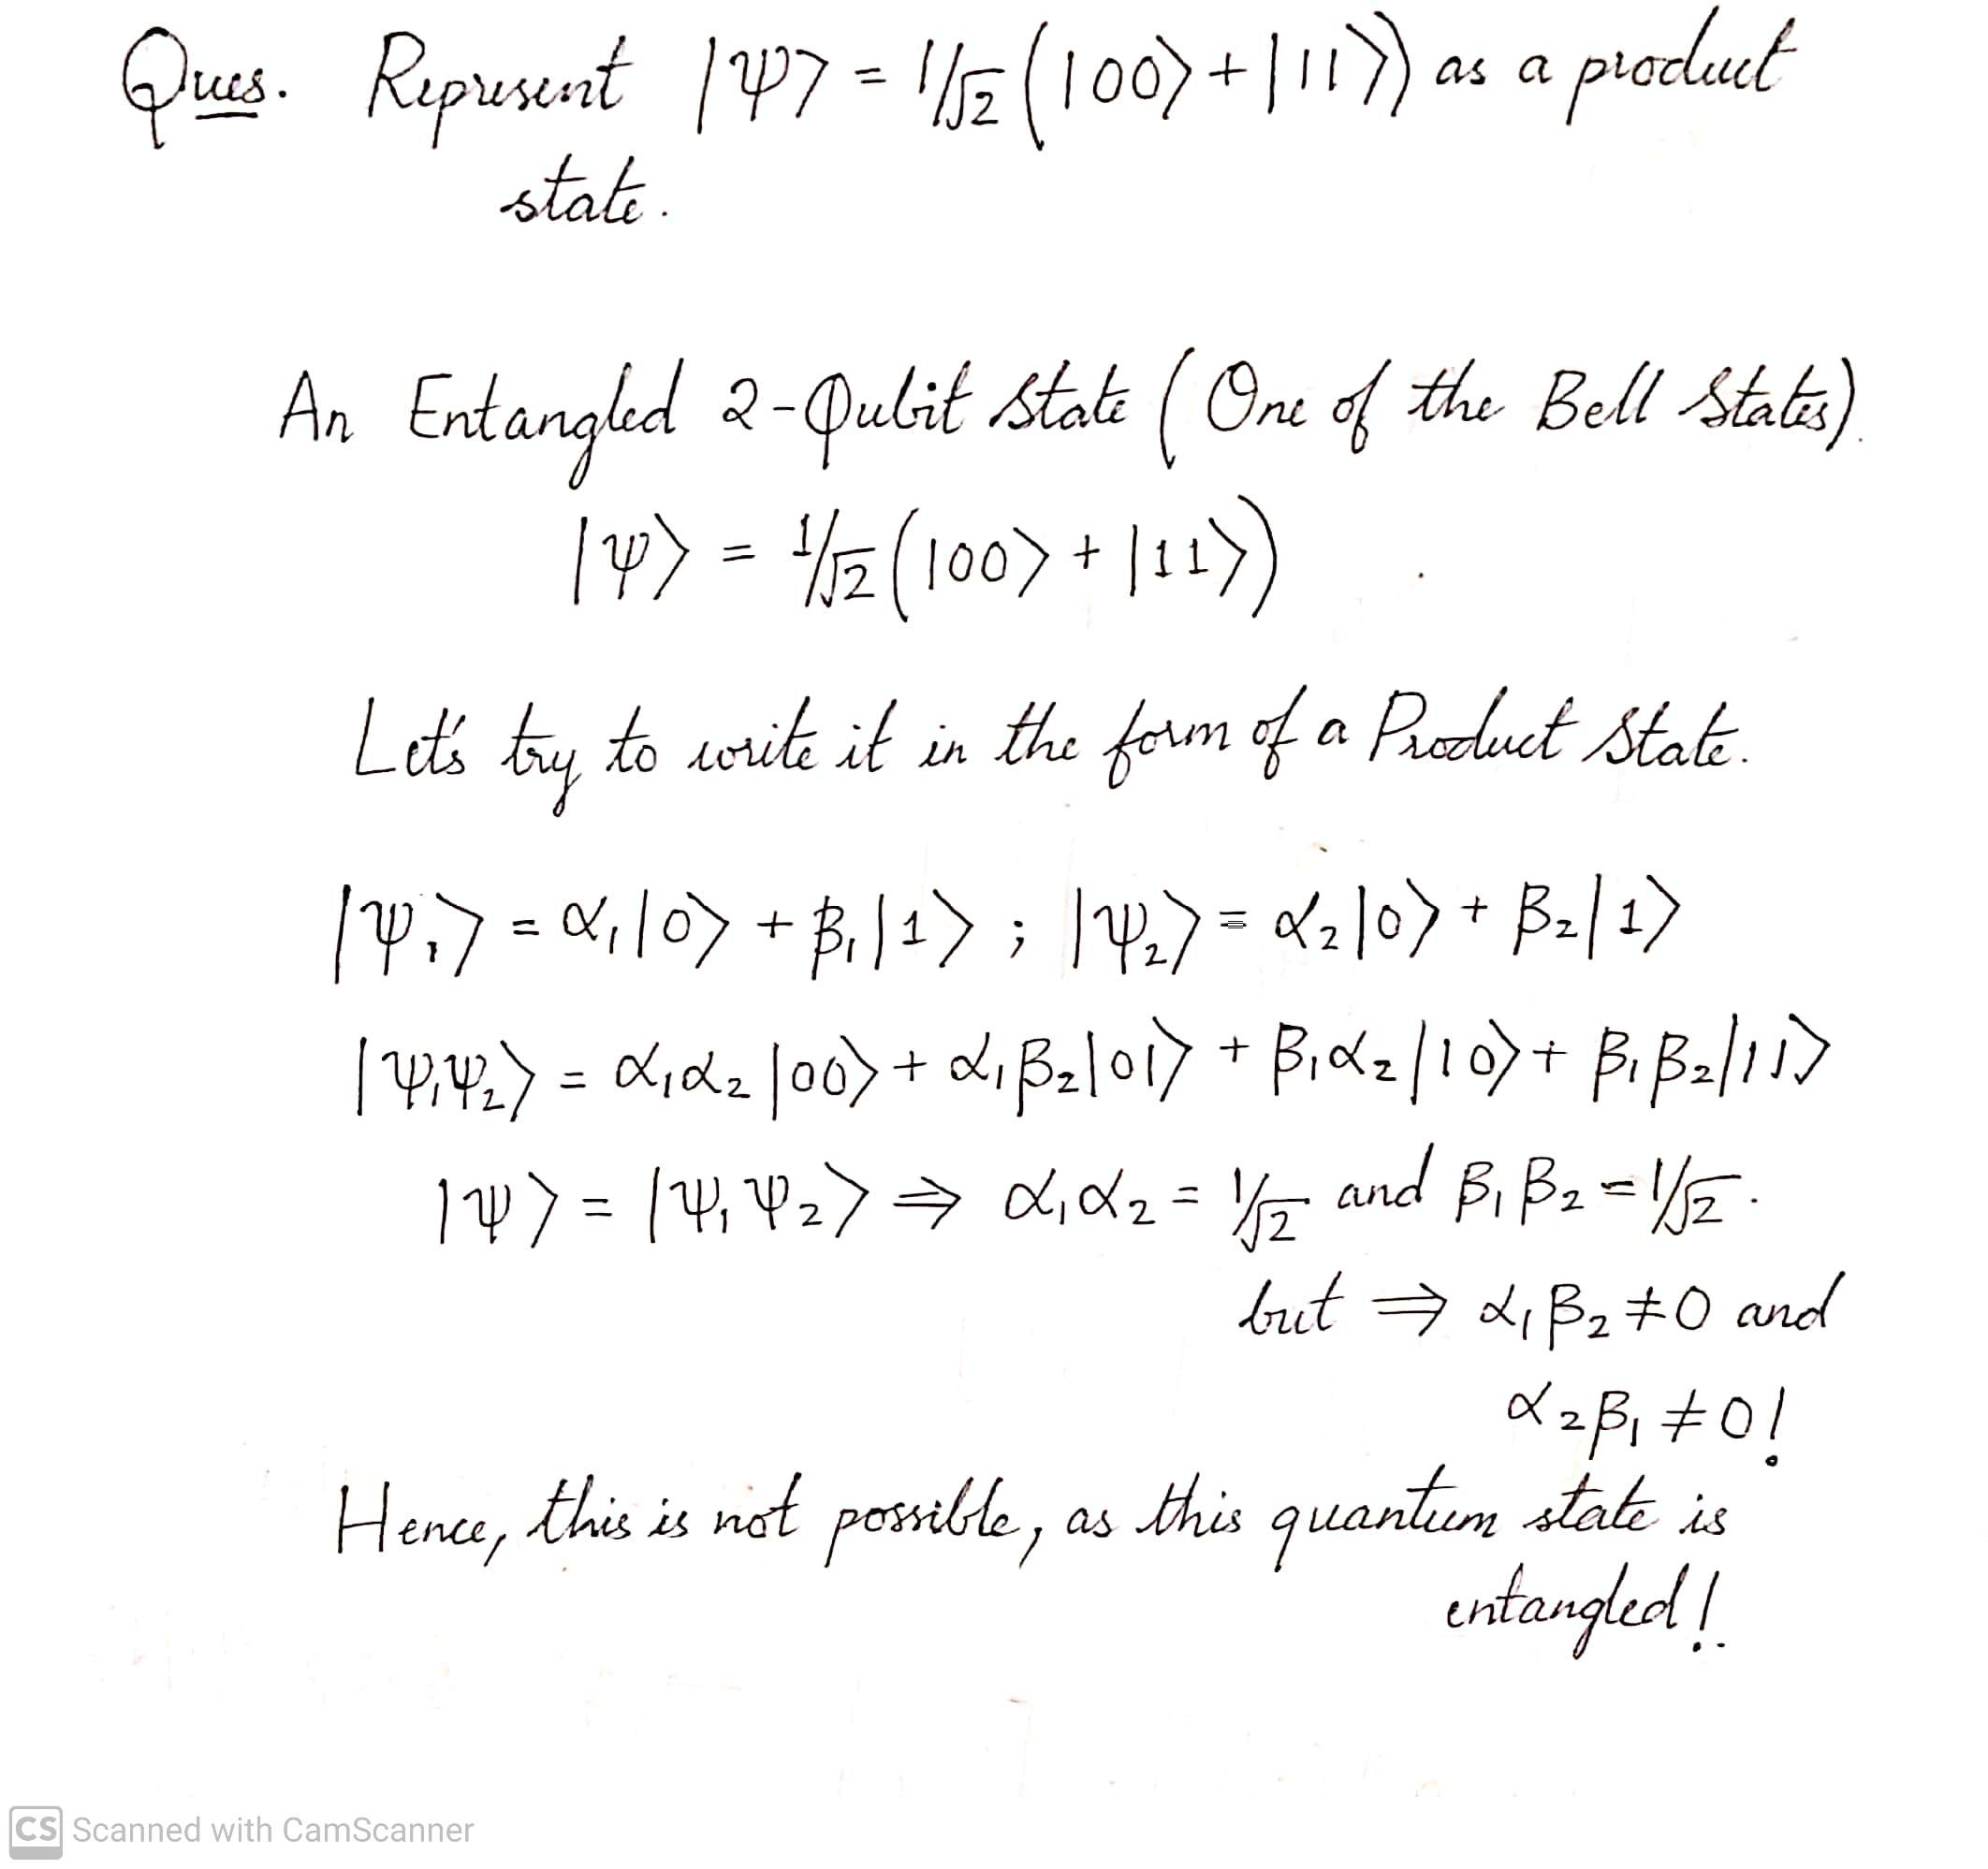 Ques. Represent |ψ> = 1/√2 (|00> + |11>) as a product
state.
An Entangled 2-Qubit State (One of the Bell States).
|ψ> = 1/√2 (|00> + |11>)
Let's try to write it in the form of a Product State.
|ψ₁> = α₁|0> + β₁|1> ; |ψ₂> = α₂|0> + β₂|1>
|ψ₁ψ₂> = α₁α₂|00> + α₁β₂|01> + β₁α₂|10> + β₁β₂|11>
|ψ> = |ψ₁ψ₂> ⇒ α₁α₂ = 1/√2 and β₁β₂ = 1/√2.
but ⇒ α₁β₂ ≠ 0 and
α₂β₁ ≠ 0!
Hence, this is not possible, as this quantum state is
entangled!
CS Scanned with CamScanner